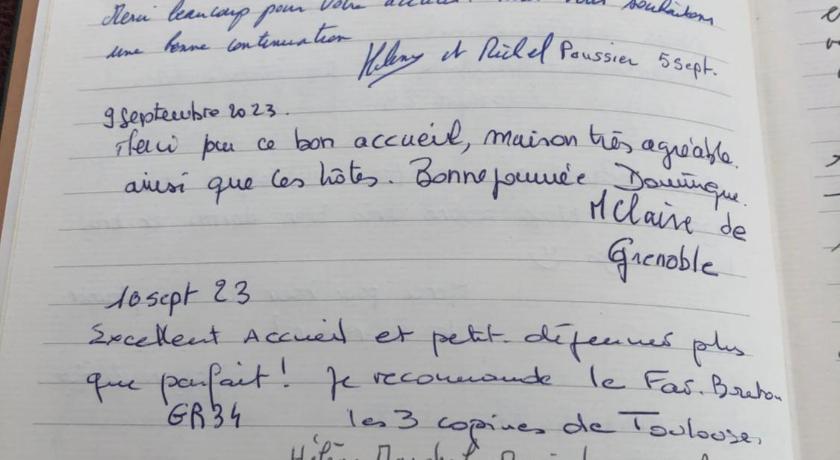 Merci beaucoup pour votre
souhaitons
une bonne continuation
et Poussier 5 sept.
9 Septembre 2023.
Merci pour ce bon accueil, maison très agréable.
ainsi que les hôtes. Bonne journée Dominique.
M Claire de
Grenoble
10 sept 23
Excellent Accueil et petit-déjeuner plus
que parfait ! Je recommande le Far-Breton
GR34 les 3 copines de Toulouse,